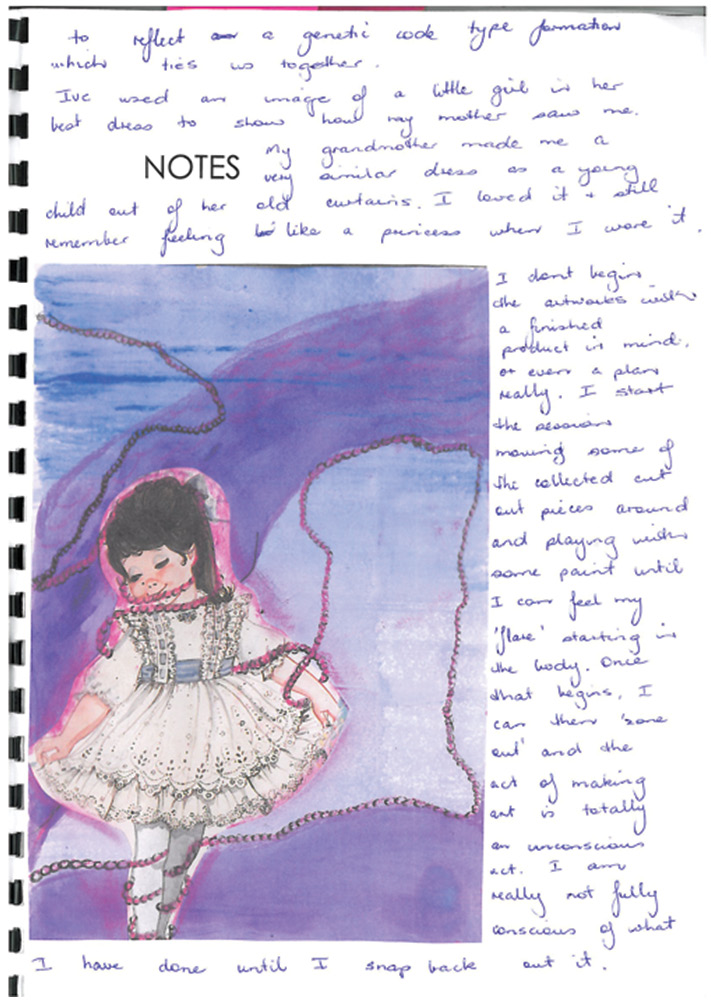 to reflect a genetic code type formation
which ties us together.
Ive used an image of a little girl in her
best dress to show how my mother saw me.
My grandmother made me a
NOTES very similar dress as a young
child out of her old curtains. I loved it + still
remember feeling like a princess when I wore it.
I dont begin
the artworks with
a finished
product in mind,
or even a plan
really. I start
the session
moving some of
the collected cut
out pieces around
and playing with
some paint until
I can feel my
'flare' starting in
the body. Once
that begins, I
can then 'zone
out' and the
act of making
art is totally
an unconscious
act. I am
really not fully
conscious of what
I have done until I snap back out it.